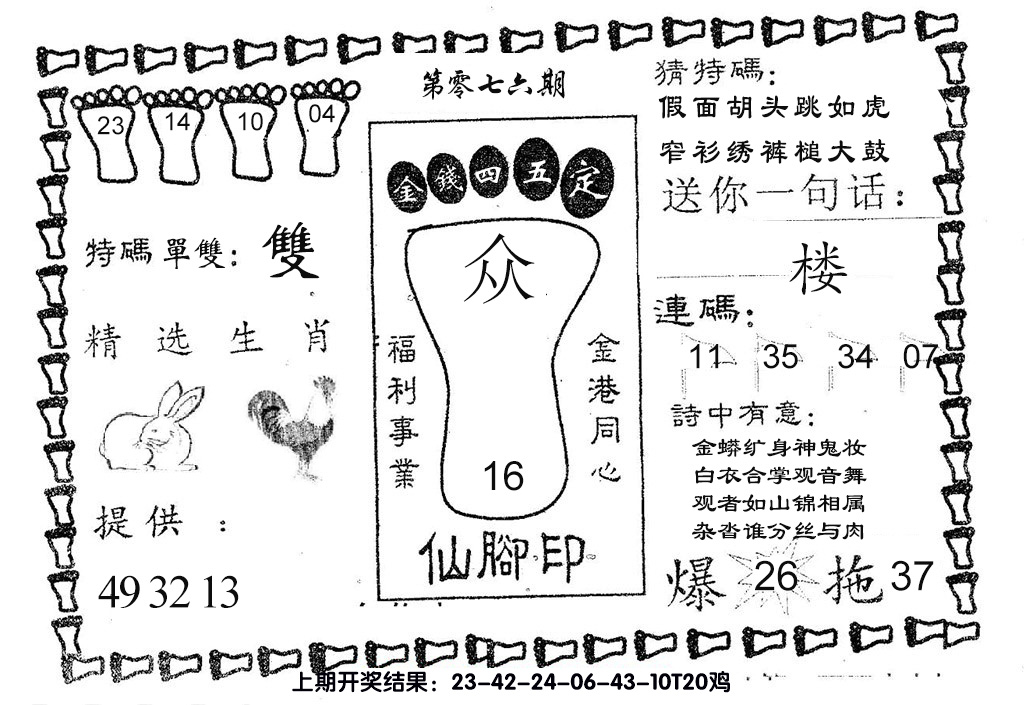 第零七六期
23 14 10 04
特碼單雙：雙
精选生肖
提供：
49 32 13
金錢四五定
众
福利事業
金港同心
16
仙腳印
猜特碼：
假面胡头跳如虎
窄衫绣裤槌大鼓
送你一句话：
楼
連碼：
11 35 34 07
詩中有意：
金蟒纩身神鬼妆
白衣合掌观音舞
观者如山锦相属
杂沓谁分丝与肉
爆 26 拖 37
上期开奖结果：23-42-24-06-43-10T20鸡